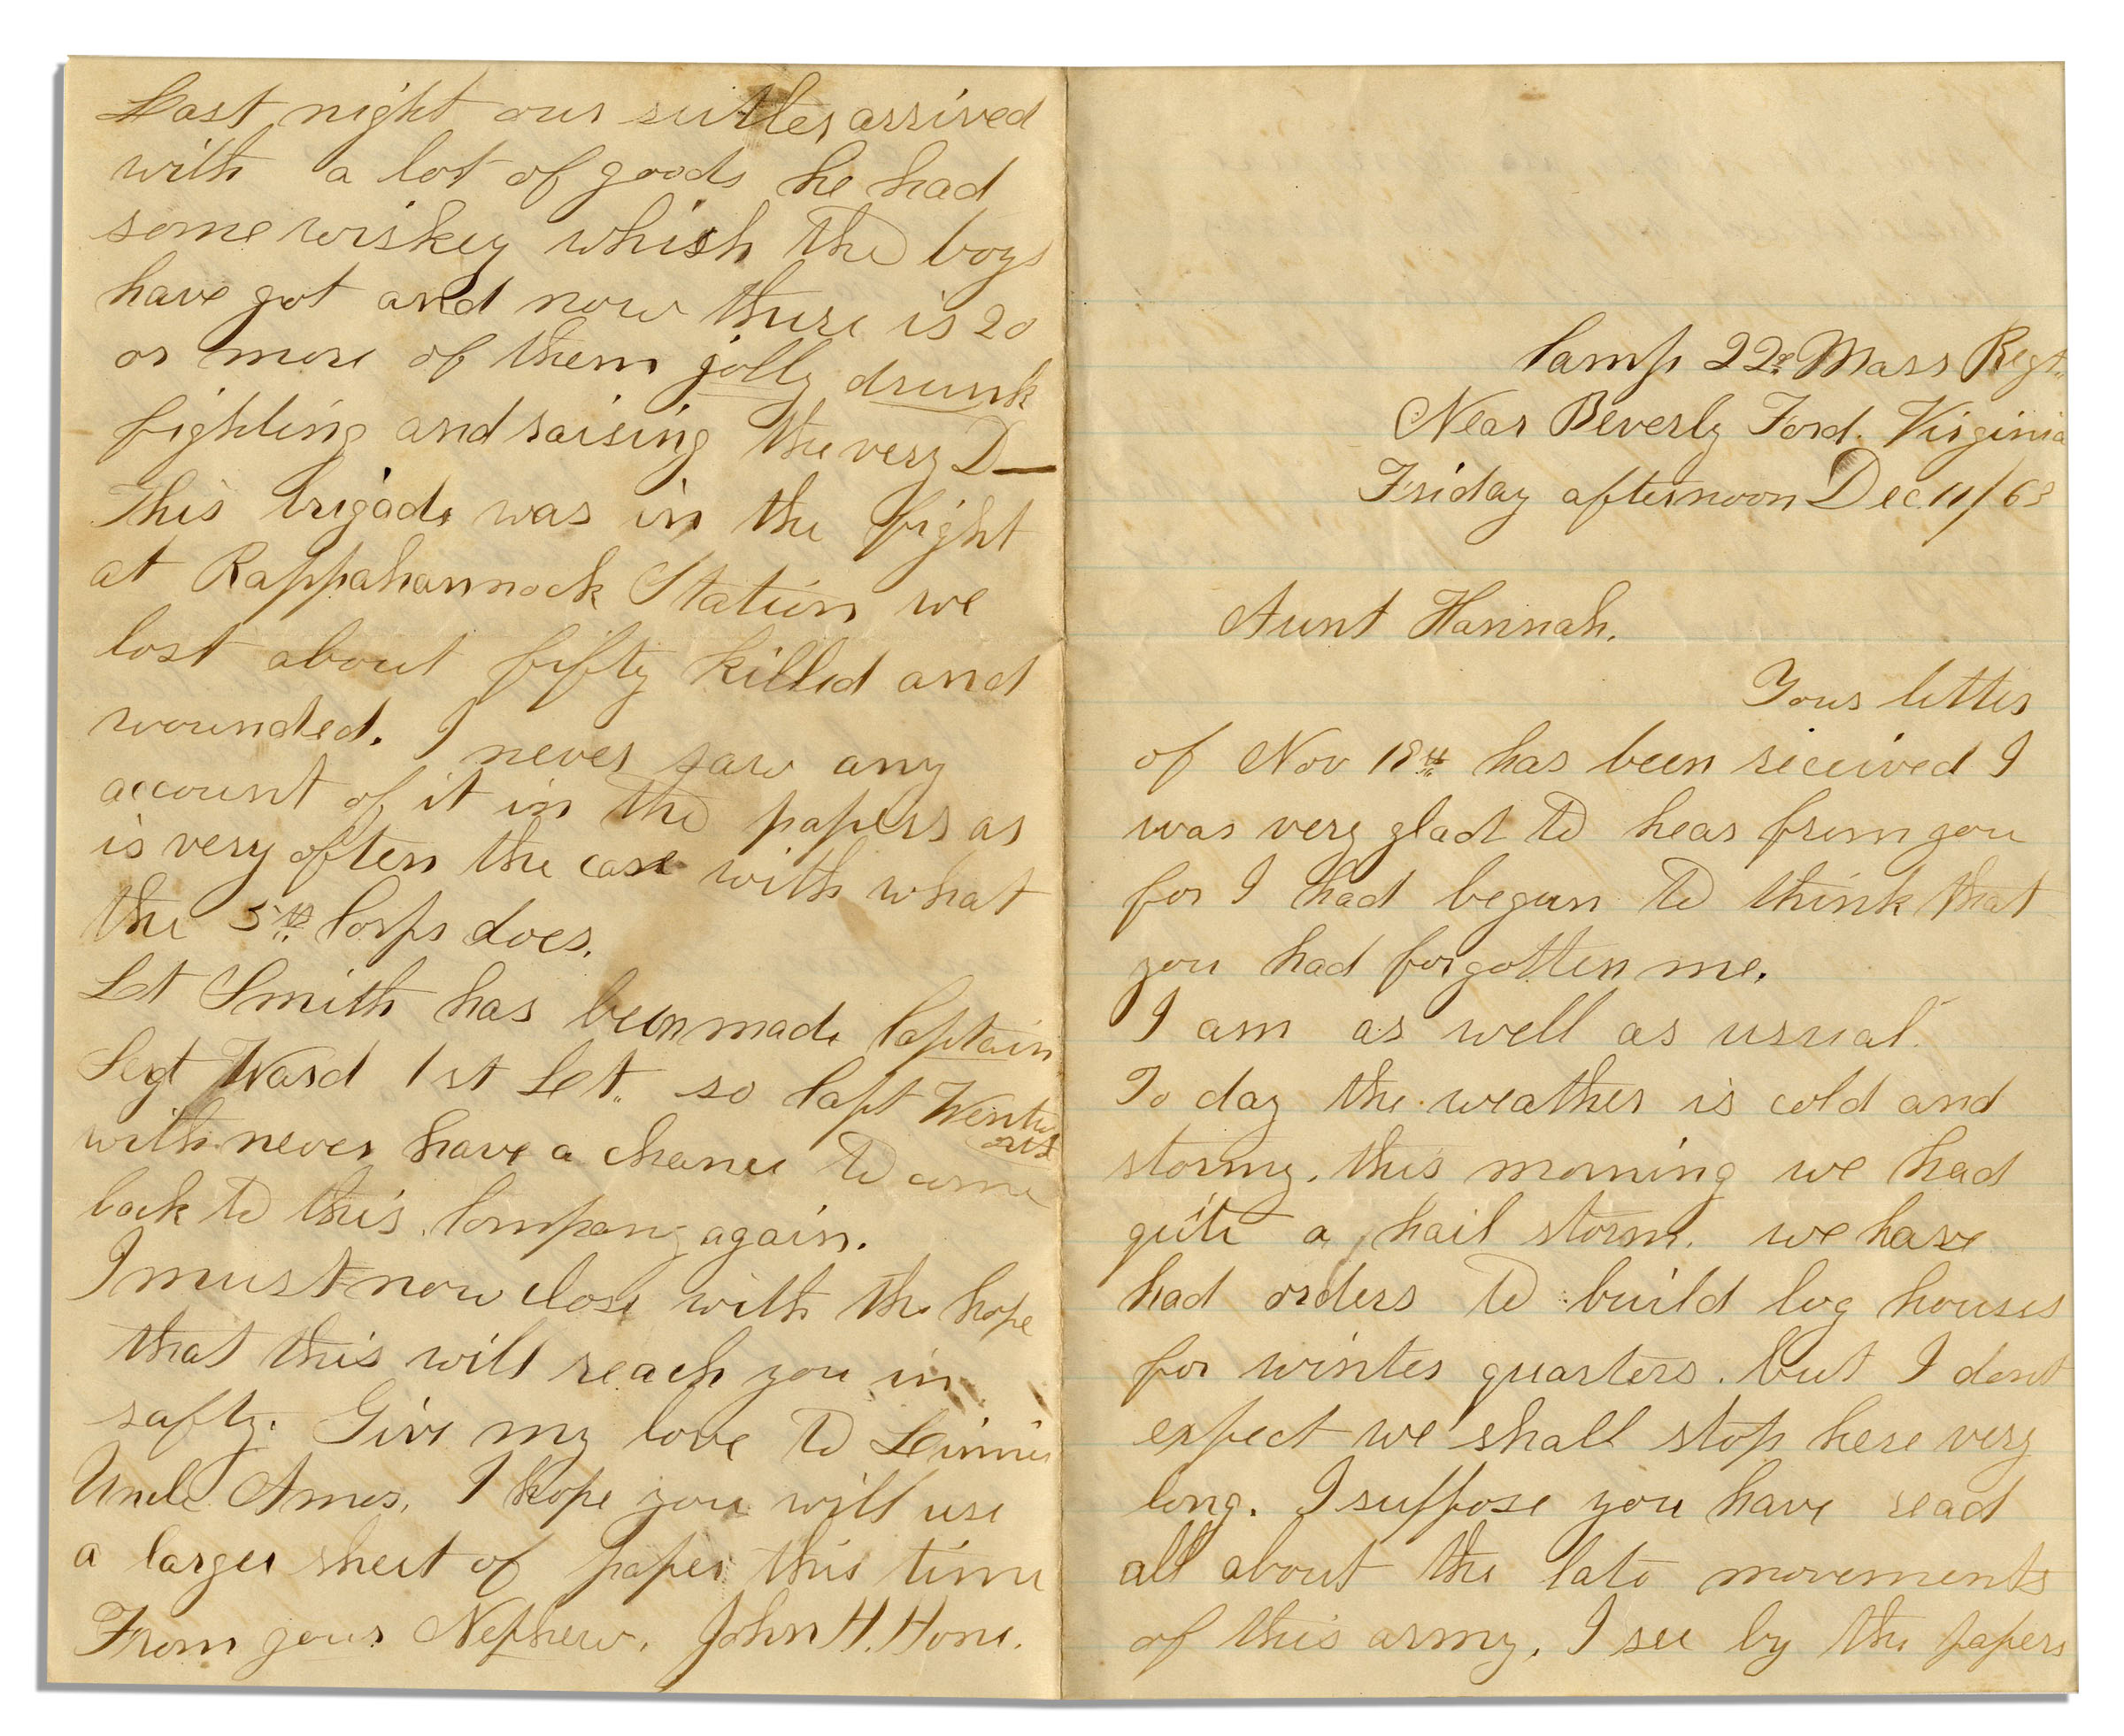 Camp 22d Mass Regt.
Near Beverly Ford. Virginia
Friday afternoon Dec 11/63
Aunt Hannah.
Your letter
of Nov 18th has been received I
was very glad to hear from you
for I had begun to think that
you had forgotten me.
I am as well as usual.
To day the weather is cold and
stormy. this morning we had
quite a hail storm. we have
had orders to build log houses
for winter quarters. but I dont
expect we shall stop here very
long. I suppose you have read
all about the late movements
of this army. I see by the papers
Last night our sutler arrived
with a lot of goods he had
some wiskey which the boys
have got and now there is 20
or more of them jolly drunk
fighting and raising the very D—
This brigade was in the fight
at Rappahannock Station we
lost about fifty killed and
wounded. I never saw any
account of it in the papers as
is very often the case with what
the 5th Corps does.
Lt Smith has been made Captain
Segt Ward 1st Lt. so Capt Wentw
orth
with never have a chance to come
back to this Company again.
I must now close with the hope
that this will reach you in
safty. Give my love to
Uncle Amos. I hope you will use
a larger sheet of paper this time
From your Nephew. John H.